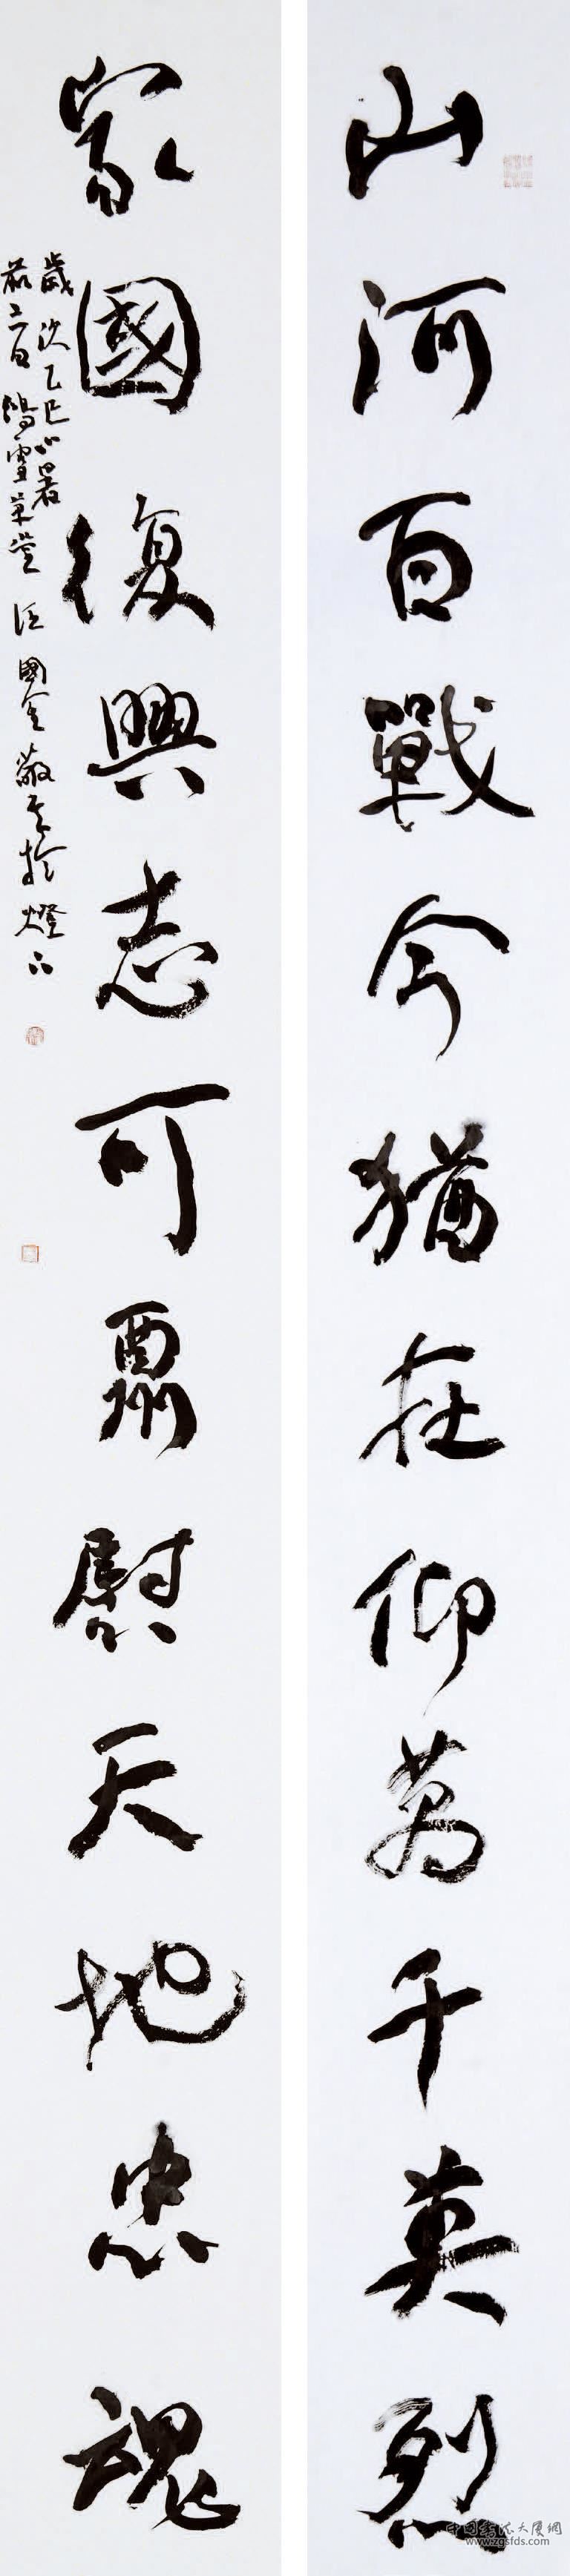 山河百戰今猶在仰萬千英烈
家國復興志可酬慰天地忠魂
歲次乙巳小暑
前三日鴻雪草堂汪國金敬書於燈下
中國書法大廈網
www.zgsfds.com